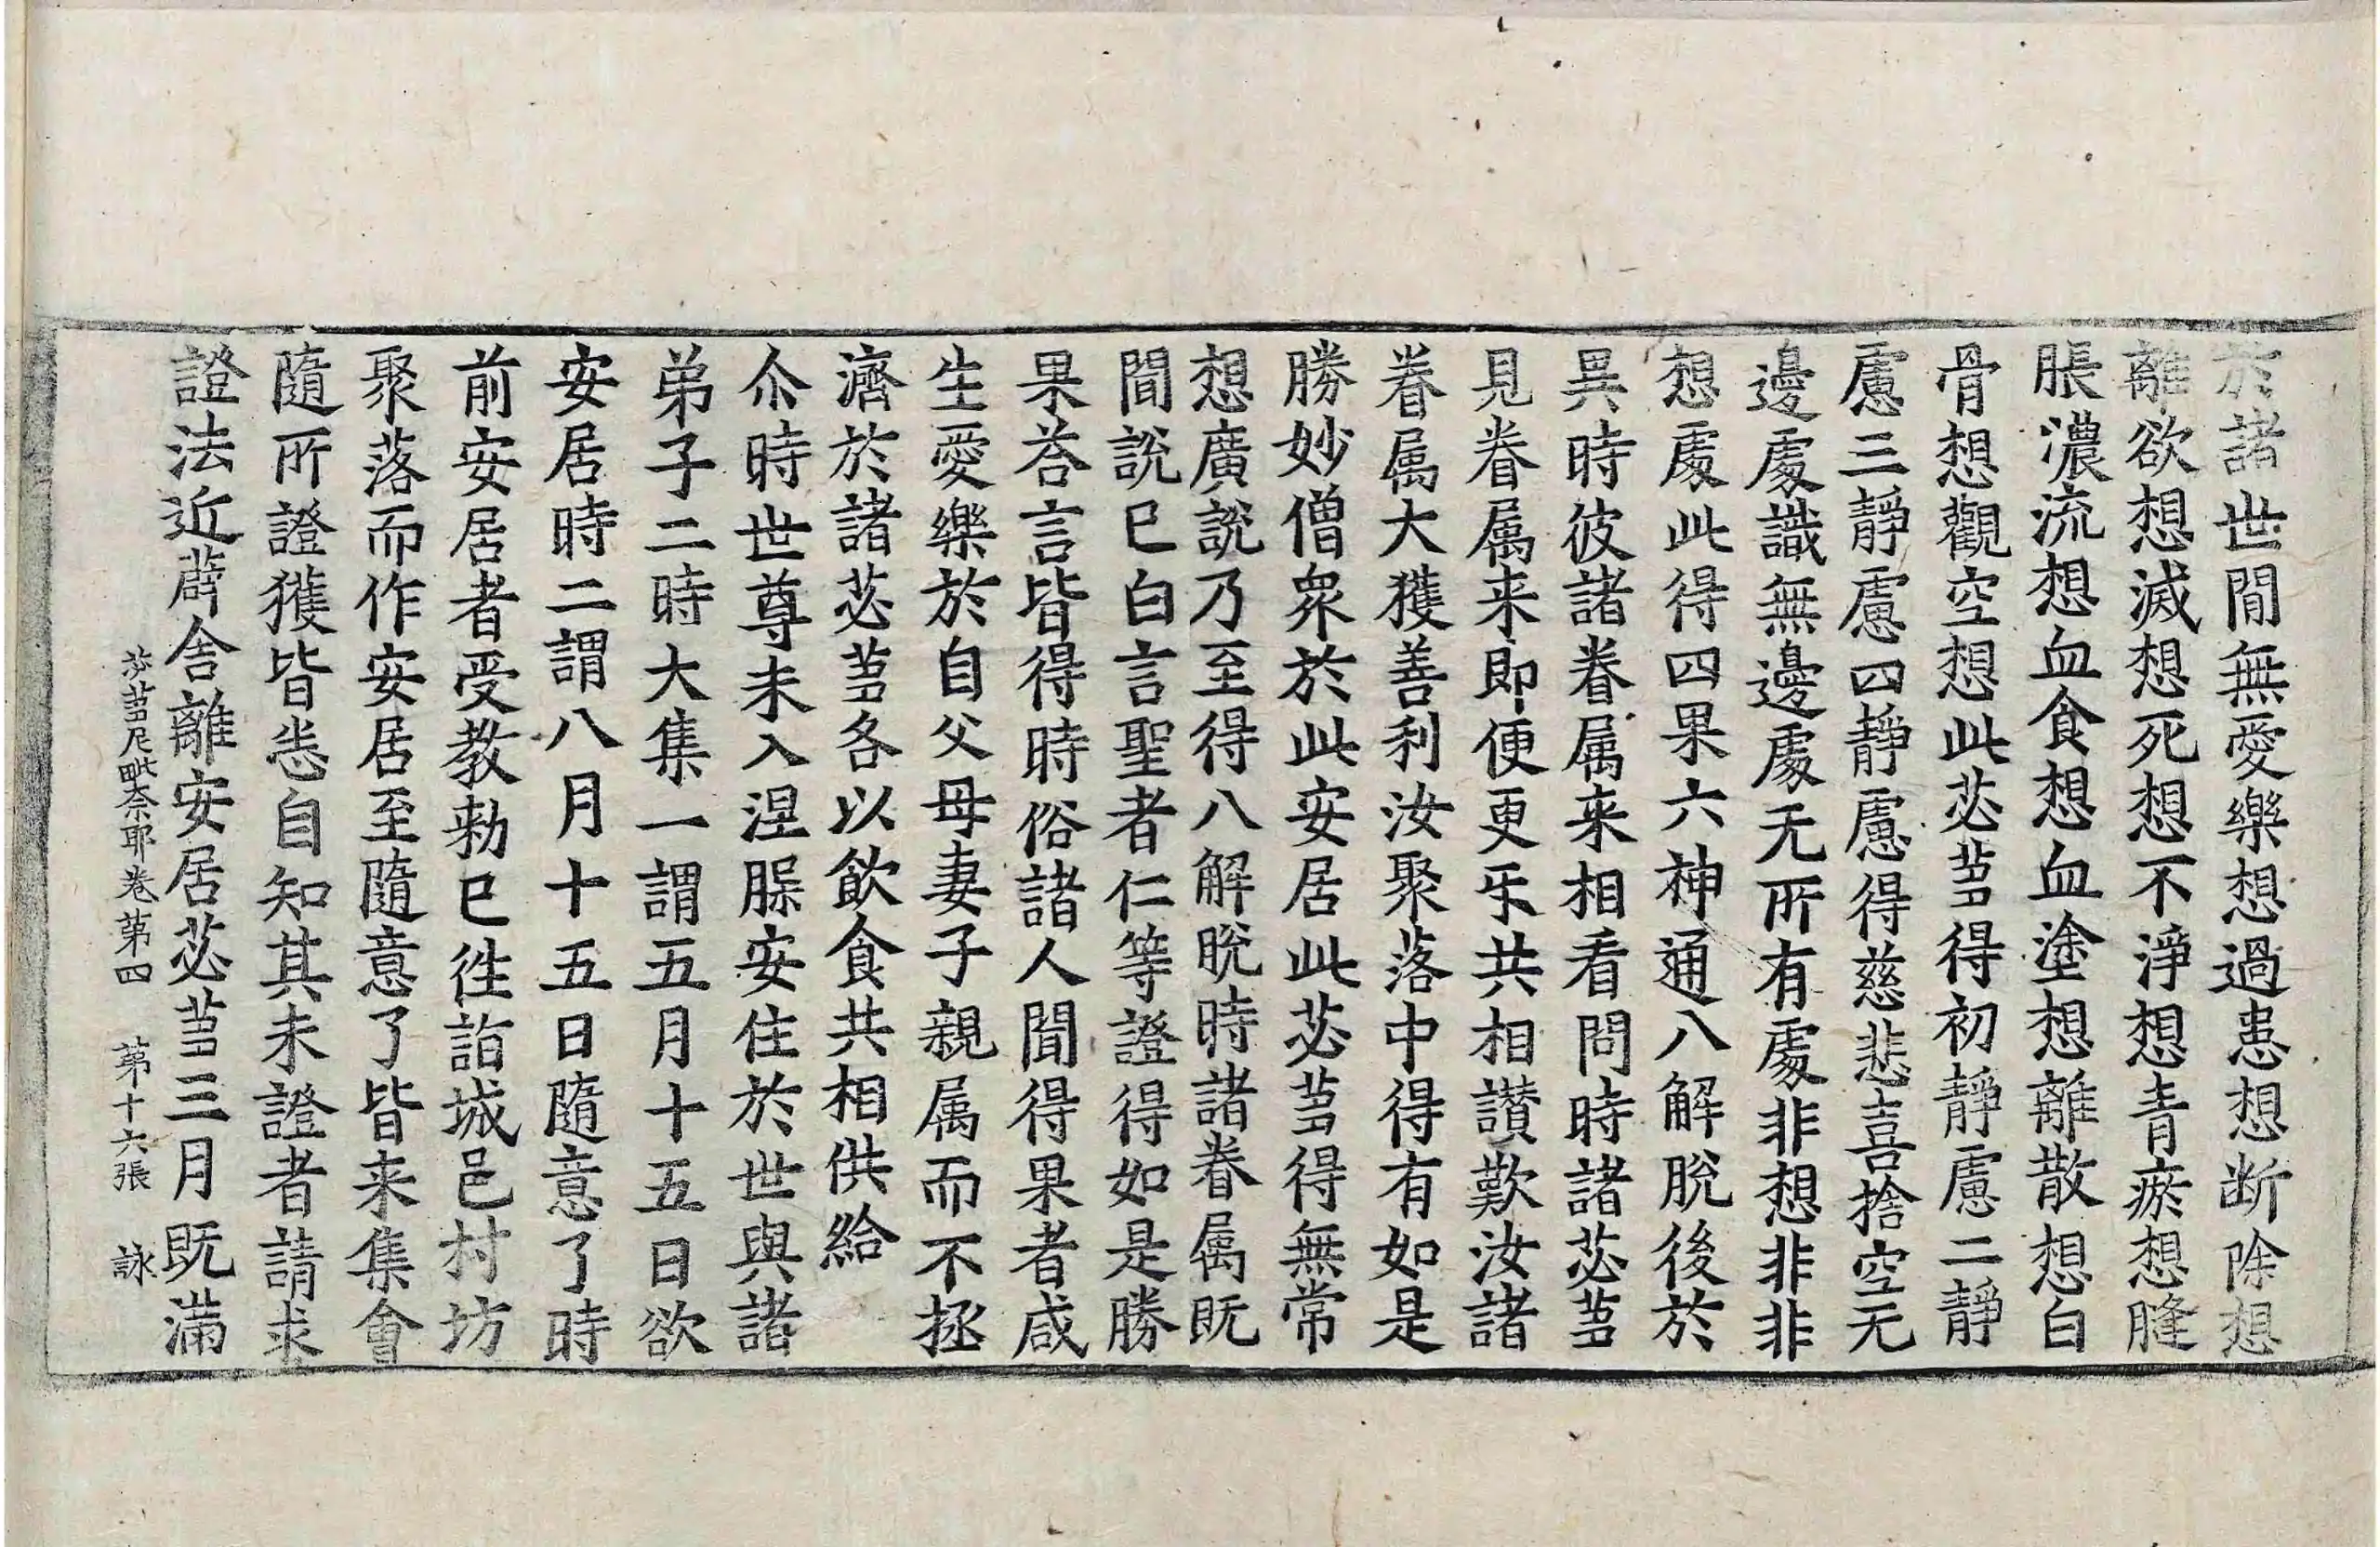 於諸世間無愛樂想過患想断除想
離欲想滅想死想不淨想青瘀想膖
脹濃流想血食想血塗想離散想白
骨想觀空想此苾芻得初靜慮二靜
慮三靜慮四靜慮得慈悲喜捨空无
邊處識無邊處无所有處非想非非
想處此得四果六神通八解脫後於
異時彼諸眷属来相看問時諸苾芻
見眷属来即便更㸦共相讃歎汝諸
眷属大獲善利汝聚落中得有如是
勝妙僧衆於此安居此苾芻得無常
想廣說乃至得八解脫時諸眷属既
聞說巳白言聖者仁等證得如是勝
果荅言皆得時俗諸人聞得果者咸
生愛樂於自父母妻子親属而不拯
濟於諸苾芻各以飲食共相供給
尒時世尊未入涅䐟安住於世與諸
弟子二時大集一謂五月十五日欲
安居時二謂八月十五日隨意了時
前安居者受教勑巳徃詣城邑村坊
聚落而作安居至隨意了皆来集會
隨所證獲皆悉自知其未證者請求
證法近薜舍離安居苾芻三月既滿
苾芻尼毗柰耶卷第四　第十六張　詠